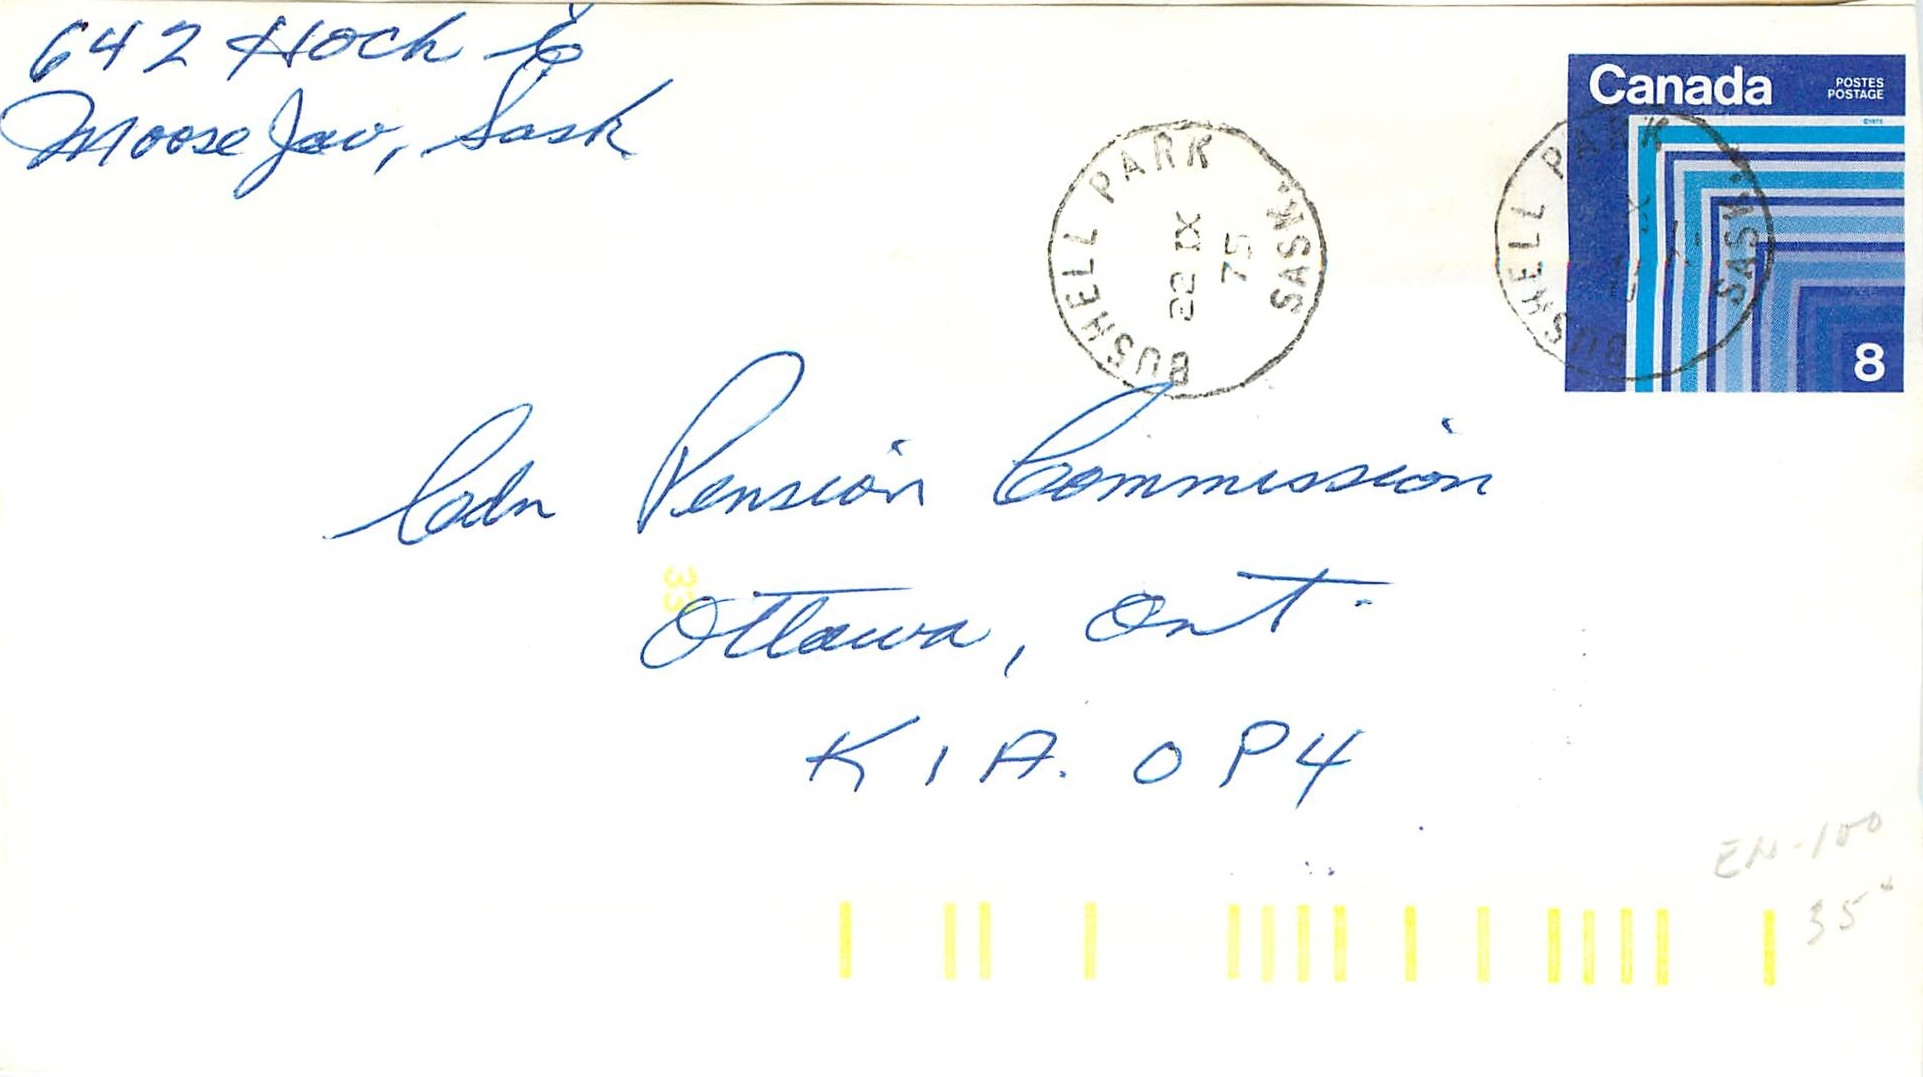 642 Hoch E
Moose Jaw, Sask
Canada
POSTES
POSTAGE
8
BUSHELL PARK SASK.
22 IX
75
BUSHELL PARK SASK.
Cdn Pension Commission
33
Ottawa, Ont.
K1A. 0P4
EN-100
35